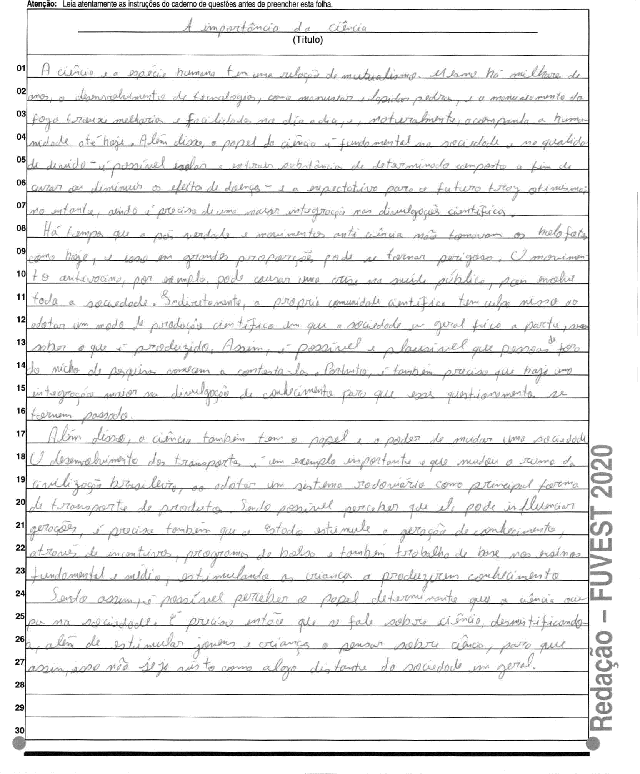 Atenção: Leia atentamente as instruções do caderno de questões antes de preencher esta folha.
A importância da ciência
(Título)
01 A ciência e a espécie humana tem uma relação de mutualismo. Mesmo há milhares de
02 anos, o desenvolvimento de tecnologias, como manusear e lapidar pedras, e o manuseamento do
03 fogo trouxe melhorias e facilidades no dia a dia, e, naturalmente, acompanha a huma-
04 nidade até hoje. Além disso, o papel da ciência é fundamental na sociedade e na qualidade
05 de vida – é possível isolar e extrair substância de determinado composto a fim de
06 curar ou diminuir os efeitos de doenças – e a expectativa para o futuro traz otimismo,
07 no entanto, ainda é preciso de uma maior integração nas divulgações científicas.
08 Há tempos que a pós verdade e movimentos anti ciência não tomavam os holofotes
09 como hoje, e isso em grandes proporções pode se tornar perigoso. O movimen-
10 to antivacina, por exemplo, pode causar uma crise na saúde pública, pois envolve
11 toda a sociedade. Indiretamente, a própria comunidade científica tem culpa nisso ao
12 adotar um modo de produção científica em que a sociedade em geral fica a parte, sem
13 saber o que é produzido. Assim, é possível e plausível que pessoas de fora
14 do nicho de pesquisa comecem a contestá-la. Portanto, é também preciso que haja uma
15 integração maior na divulgação de conhecimento para que esses questionamentos se
16 tornem passado.
17 Além disso, a ciência também tem o papel e o poder de mudar uma sociedade.
18 O desenvolvimento dos transportes é um exemplo importante e que mudou o rumo da
19 civilização brasileira, ao adotar um sistema rodoviário como principal forma
20 de transporte de produtos. Sendo possível perceber que ele pode influenciar
21 gerações, é preciso também que o Estado estimule a geração de conhecimento,
22 através de incentivos, programas de bolsa e também trabalho de base nos ensinos
23 fundamental e médio, estimulando as crianças a produzirem conhecimento.
24 Sendo assim, é possível perceber o papel determinante que a ciência ocu-
25 pa na sociedade. É preciso então que se fale sobre ciência, desmistificando-
26 a, além de estimular jovens e crianças a pensar sobre ciência, para que
27 assim, isso não seja visto como algo distante da sociedade em geral.
28
29
30
Redação – FUVEST 2020